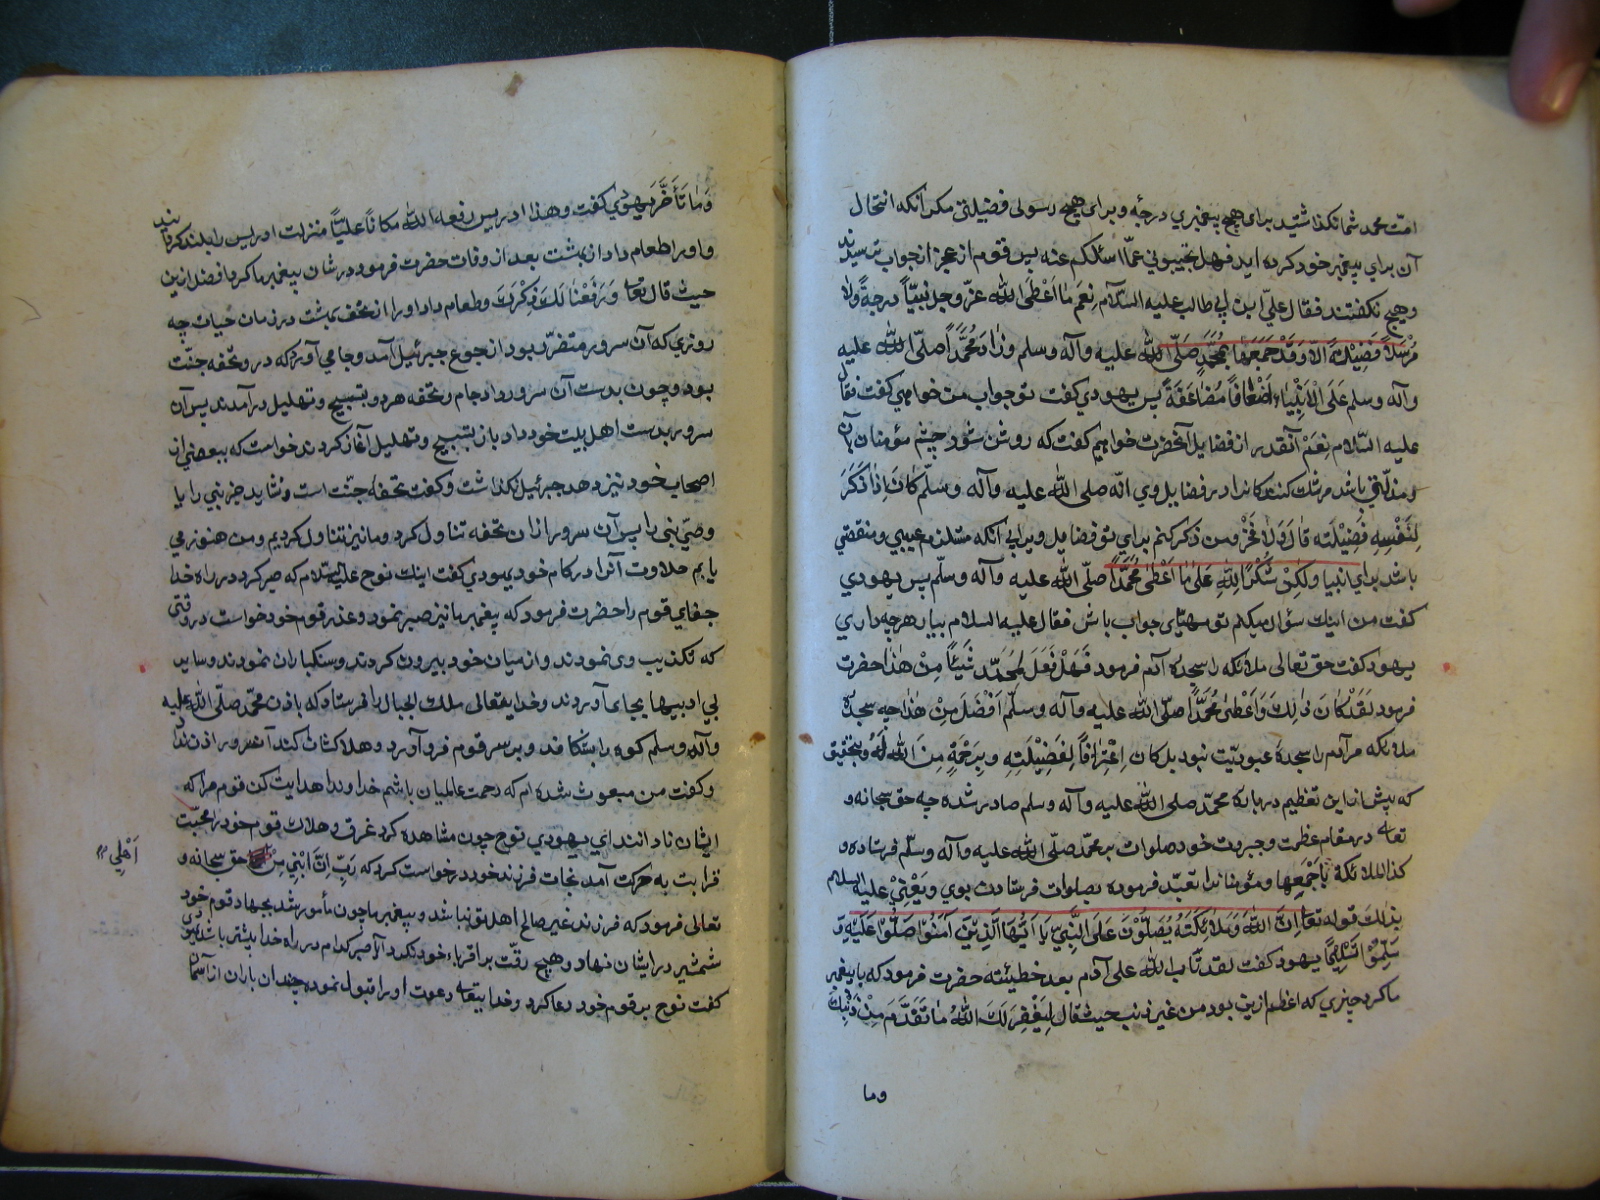 امت محمد شما نکذاشتید برای هیچ پیغمبری درجه و برای هیچ رسولی فضیلتی مکر آنکه انتحال
آن برای پیغمبر خود کرده اید فهل تجیبونی عمّا اسئلکم عنه پس قوم از عجز از جواب ترسیدند
و هیچ نکفتند فقال علیّ ابن ابی طالب علیه السّلام نِعَم مٰا اَعْطَی اللّٰه عزّ و جل نبیّاً درجةً ولا
مُرْسَلاً فَضِیْلَةً اِلّا وَقَدْ جَمَعَهٰا بِمُحَمَّدٍ صَلّی اللّٰه علیه وآله وسلم وَزٰادَ مُحَمَّداً صلّی اللّٰه علیه
وآله وسلم عَلَی الْاَنْبِیٰاءِ اَضْعٰافاً مُضٰاعَفَةً پس یهودی کفت تو جواب من خواهی کفت فقال
علیه السّلام نِعَمْ آنقدر از فضایل آنحضرت خواهیم کفت که روشن شود چشم مؤمنان بآن
و مندفع باشد مر شک کنندکانرا در فضایل وی انّه صلی اللّٰه علیه وآله وسلّم کٰانَ اِذٰا ذَکَرَ
لِنَفْسِهِ فَضِیْلَته قٰالَ وَلٰا فَخْرَ و من ذکر کنم برای تو فضایل ویرا بی آنکه مستلزم عیبی و منقصتی
باشد برای انبیا وَلٰکِنْ شُکْراً لِلّٰهِ عَلیٰ مٰا اَعْطیٰ مُحَمَّداً صلّی اللّٰه علیه وآله وسلّم پس یهودی
کفت من اینک سؤال میکنم تو مهیّای جواب باش فقال علیه السلام بیار هرچه داری
یهود کفت حق تعالی ملائکه را سجدهٔ آدم فرمود فَهَلْ فَعَلَ لِمُحَمَّد شَیْئاً مِنْ هٰذا حضرت
فرمود لَقَدْ کٰانَ ذٰلِکَ وَاَعْطیٰ مُحَمَّداً صلّی اللّٰه علیه وآله وسلّم اَفْضَلَ مِنْ هٰذٰا چه سجدهٔ
ملائکه مر آدم را سجدهٔ عبودیّت نبود بل کان اِعْتِرٰافاً لِفَضِیْلَتِهِ وبِرَحْمَةٍ مِنَ اللّٰه لَهُ وبتحقیق
که بیش از این تعظیم در بارهٔ محمّد صلی اللّٰه علیه وآله وسلم صادر شده چه حق سبحانه و
تعالی در مقام عظمت و جبروت خود صلوات بر محمّد صلّی اللّٰه علیه وآله وسلّم فرستاده و
کذا الملائکة بِاَجْمَعِهٰا و مؤمنانرا تعبّد فرموده بصلوات فرستادن بوی ویَعْنِیْ علیه السلام
بذلک قوله تعا اِنَّ اللّٰهَ وَمَلٰائِکَتَهُ یُصَلُّوْنَ عَلَی النَّبِیِّ یٰا اَیُّهَا الَّذِیْنَ آمَنُوْا صَلُّوْا عَلَیْهِ وَ
سَلِّمُوْا تَسْلِیْمًا یهود کفت لقد تاب اللّٰه علی آدم بعد خطیئته حضرت فرمود که با پیغمبر
ما کرد چیزی که اعظم ازین بود من غیر ذنب حیث قال لِیَغْفِرَ لَکَ اللّٰهُ مٰا تَقَدَّمَ مِنْ ذَنْبِکَ
وما
وَمٰا تَأَخَّرَ یهودی کفت وهذا ادریس رفعه اللّٰه مکاناً عَلیّاً منزلت ادریس را بلند کردانید
و او را طعام داد از بهشت بعد از وفات حضرت فرمود در شان پیغمبر ما کرد افضل ازین
حیث قال تعا وَرَفَعْنٰا لَکَ ذِکْرَکَ و طعام داد او را از تحف بهشت در زمان حیات چه
روزی که آن سرور متضرّر بود از جوع جبرئیل آمد و جامی آورد که در و تحفه جنّت
بود و چون بدست آن سرور داد جام و تحفه هر دو بتسبیح و تهلیل درآمدند پس آن
سرور بدست اهل بیت خود داد باز بتسبیح و تهلیل آغاز کردند خواست که ببعضی از
اصحاب خود نیز دهد جبرئیل نکذاشت و کفت تحفهٔ جنّت است و نشاید جز نبی را یا
وصیّ نبی را پس آن سرور ازان تحفه تناول کرد و ما نیز تناول کردیم و من هنوز می
یابم حلاوت آنرا در کام خود یهودی کفت اینک نوح علیه السّلام که صبر کرد در راه خدا
جفای قوم را حضرت فرمود که پیغمبر ما نیز صبر نمود و عذر قوم خود خواست در وقتی
که تکذیب وی نمودند و از میان خود بیرون کردند و سنکباران نمودند و سایر
بی ادبیها بجای آوردند و خدایتعالی ملک الجبال را فرستاد که باذن محمّد صلّی اللّٰه علیه
وآله وسلم کوه را بشکافد و بر سر قوم فرو آورد و هلاکشان کند آنسرور اذن نداد
و کفت من مبعوث شده ام که رحمت عالمیان باشم خداوندا هدایت کن قوم مرا که
ایشان نادانند ای یهودی نوح چون مشاهده کرد غرق و هلاک قوم خود را محبّت
قرابت به حرکت آمد نجات فرزند خود درخواست کرد که رَبِّ اِنَّ ابْنِی مِنْ حق سبحانه و
اَهْلِی
تعالی فرمود که فرزند غیر صالح اهل تو نباشد و پیغمبر ما چون مأمور شد بجهاد قوم خود
شمشیر در ایشان نهاد و هیچ رقّت بر اقرباء خود نکرد آیا صبر کدام در راه خدا بیشتر باشد
کفت نوح بر قوم خود دعا کرد و خدایتعالی دعوت او را قبول نموده چندان باران از آسمان